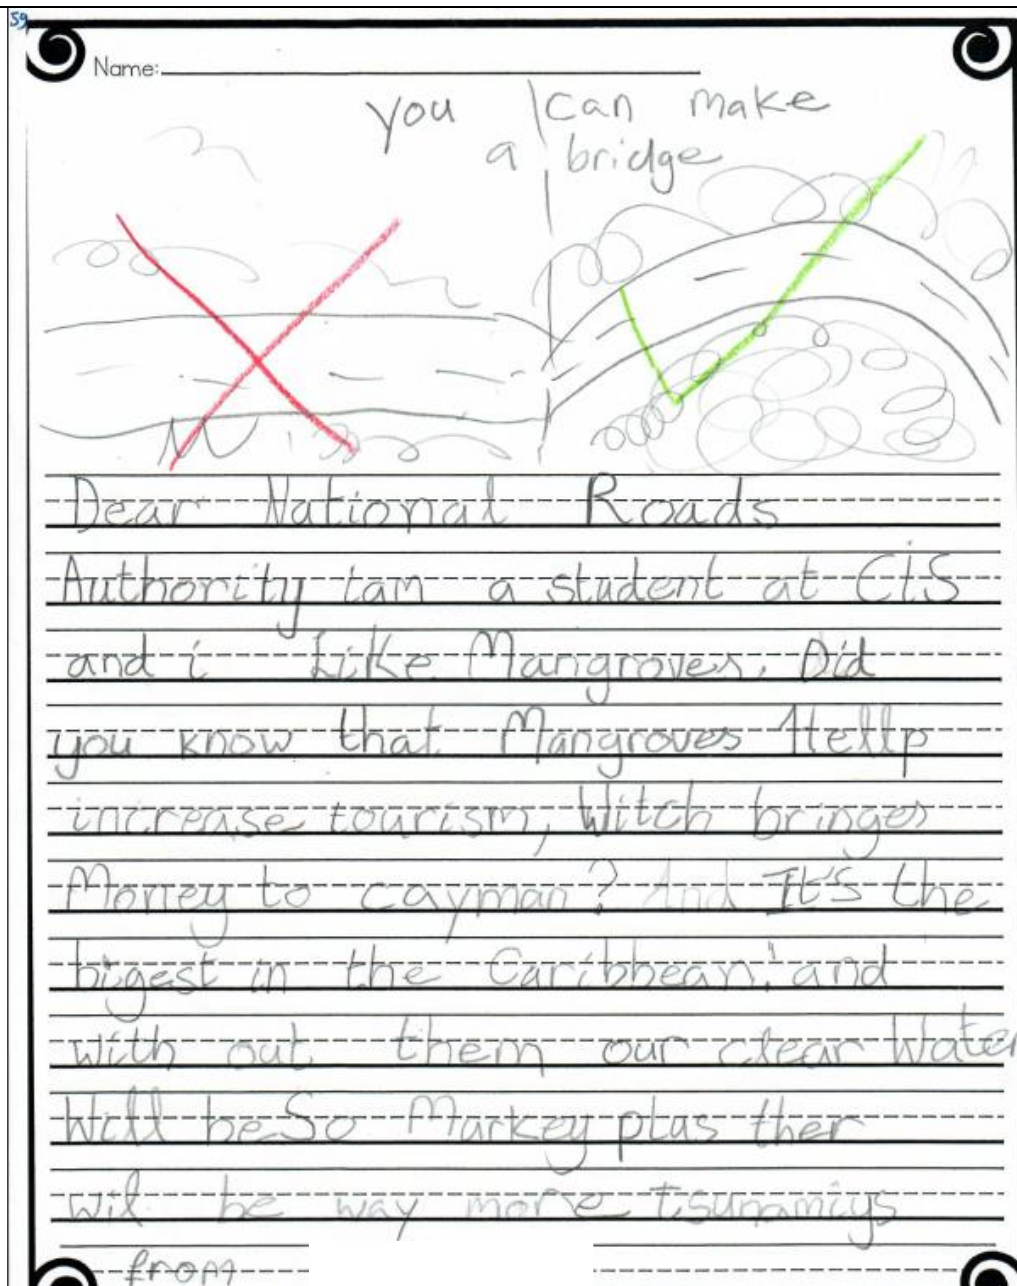 59
Name:
you can make
a bridge
Dear National Roads
Authority iam a student at CIS
and i Like Mangroves. Did
you know that Mangroves Hellp
increase tourism, Witch bringes
Money to cayman? And It's the
bigest in the Caribbean! and
with out them our clear Water
Will be So Murkey plus ther
wil be way more tsunamiys
from